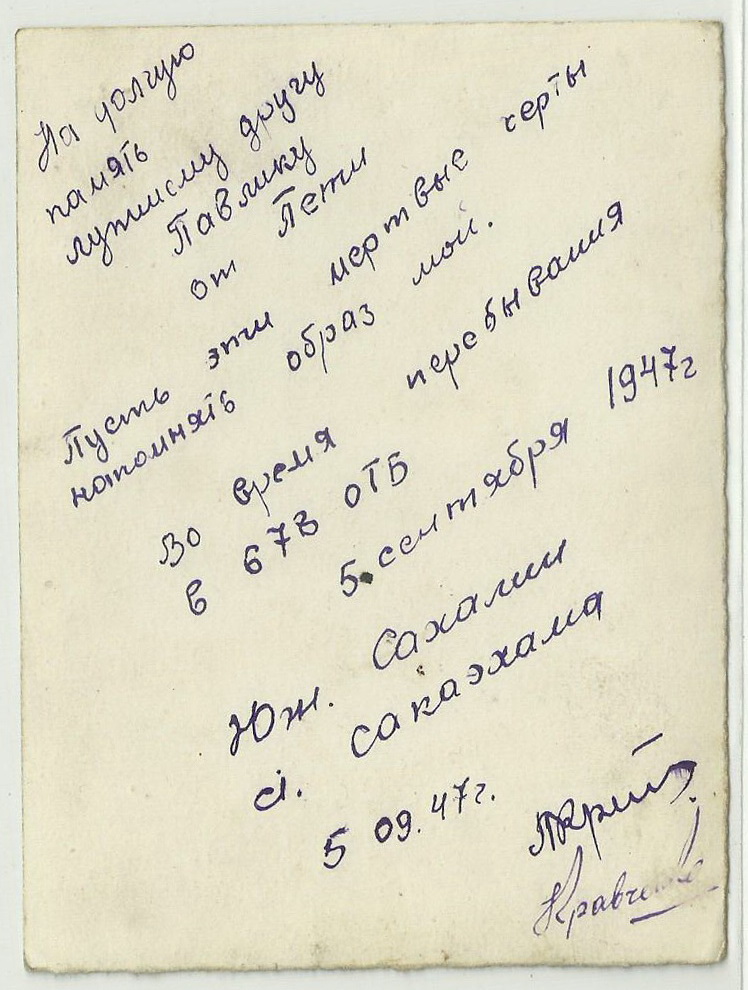 На долгую
память
лутшему другу
Павлику
от Пети
Пусть эти мертвые черты
напомнять образ мой.
Во время перебывания
в 673 ОТБ
5 сентября 1947г
Юж. Сахалин
сакаэхама
5 09. 47г.
Кравченко